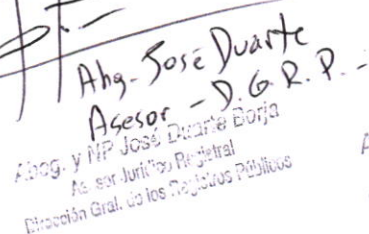 Abg. José Duarte
Asesor - D.G.R.P. -
Abog. y NP José Duarte Borja
Asesor Jurídico Registral
Dirección Gral. de los Registros Públicos